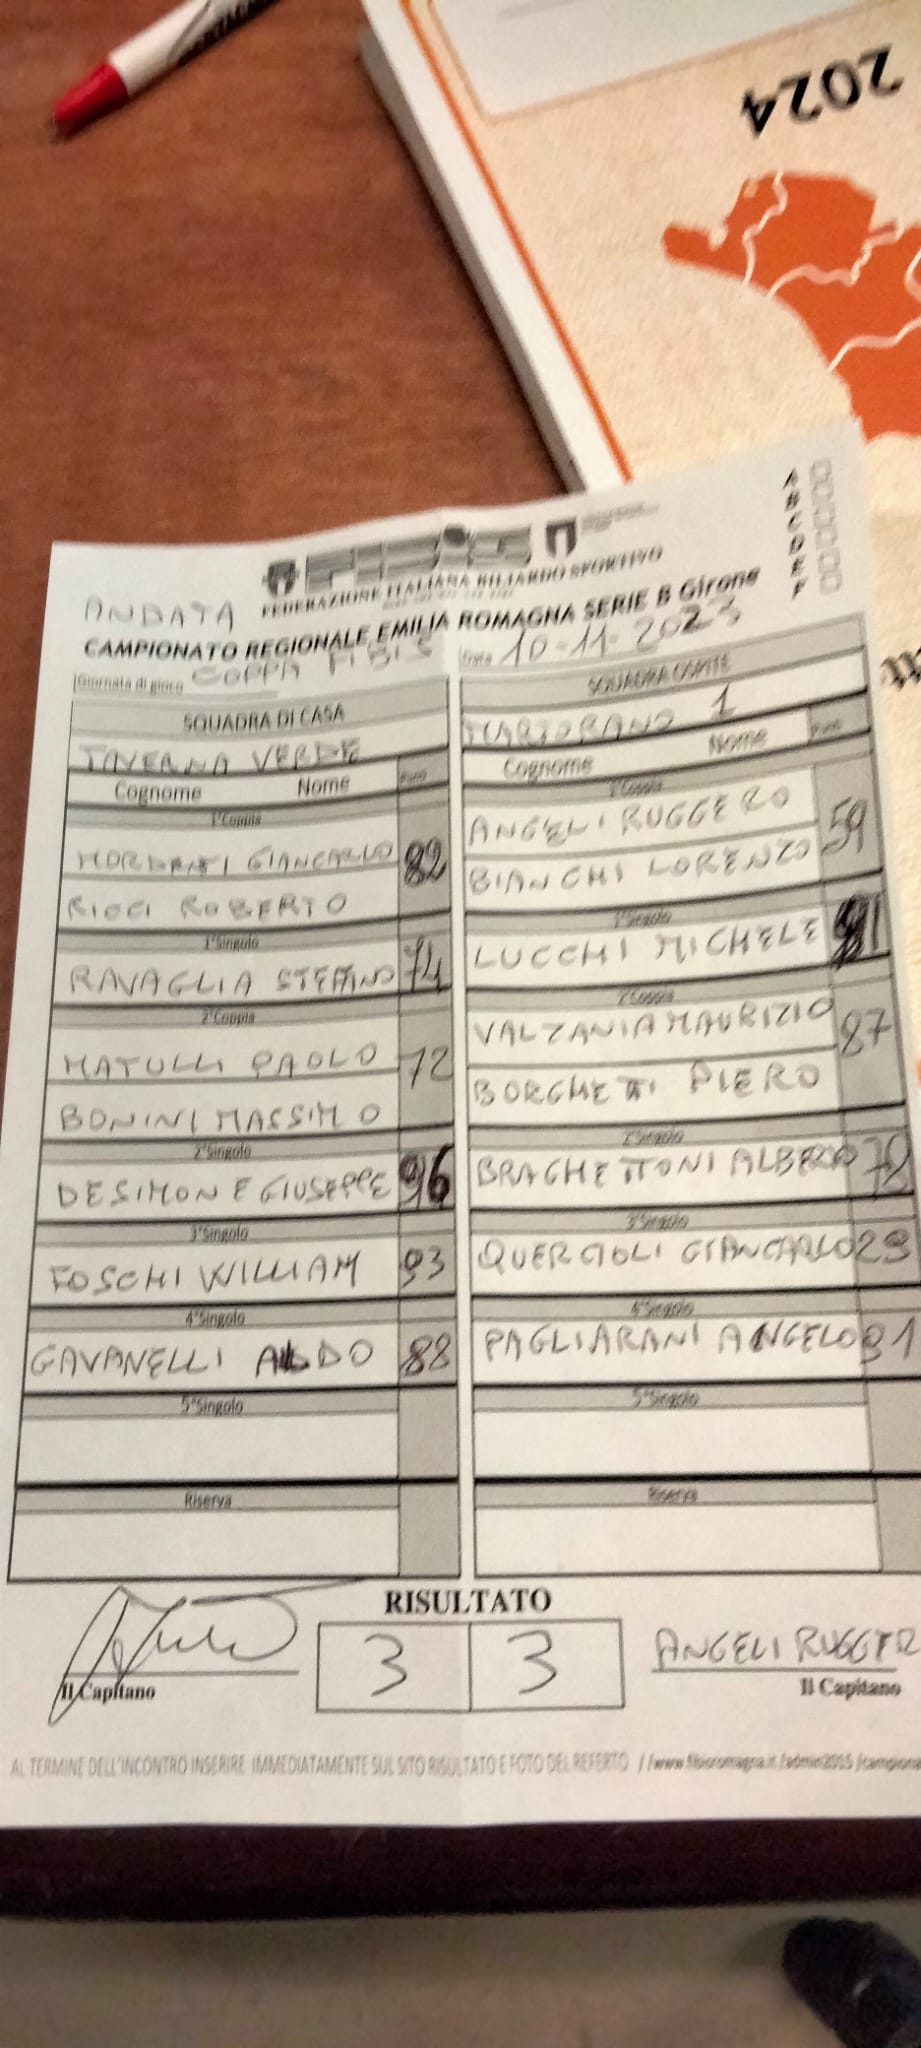 2024
A
B
C
D
E
F
FEDERAZIONE ITALIANA BILIARDO SPORTIVO
ANDATA
CAMPIONATO REGIONALE EMILIA ROMAGNA SERIE B Girone
Giornata di gioco COPPA FIBIS
Data 10-11-2023
SQUADRA DI CASA
TAVERNA VERDE
Cognome Nome
1°Coppia
MORDENTI GIANCARLO 82
RICCI ROBERTO
1°Singolo
RAVAGLIA STEFANO 74
2°Coppia
MATULLI PAOLO 72
BONINI MASSIMO
2°Singolo
DESIMONE GIUSEPPE 96
3°Singolo
FOSCHI WILLIAM 93
4°Singolo
GAVANELLI ALDO 88
5°Singolo
Riserva
SQUADRA OSPITE
MARTORANO 1
Cognome Nome
1°Coppia
ANGELI RUGGERO 59
BIANCHI LORENZO
1°Singolo
LUCCHI MICHELE
2°Coppia
VALZANIA MAURIZIO 87
BORGHETTI PIERO
2°Singolo
BRAGHETTONI ALBERTO
3°Singolo
QUERCIOLI GIANCARLO
4°Singolo
PAGLIARANI ANGELO 91
5°Singolo
Riserva
RISULTATO
3 3
Il Capitano
ANGELI RUGGER
Il Capitano
AL TERMINE DELL'INCONTRO INSERIRE IMMEDIATAMENTE SUL SITO RISULTATO E FOTO DEL REFERTO //www.fibisromagna.it/admin2015/campiona